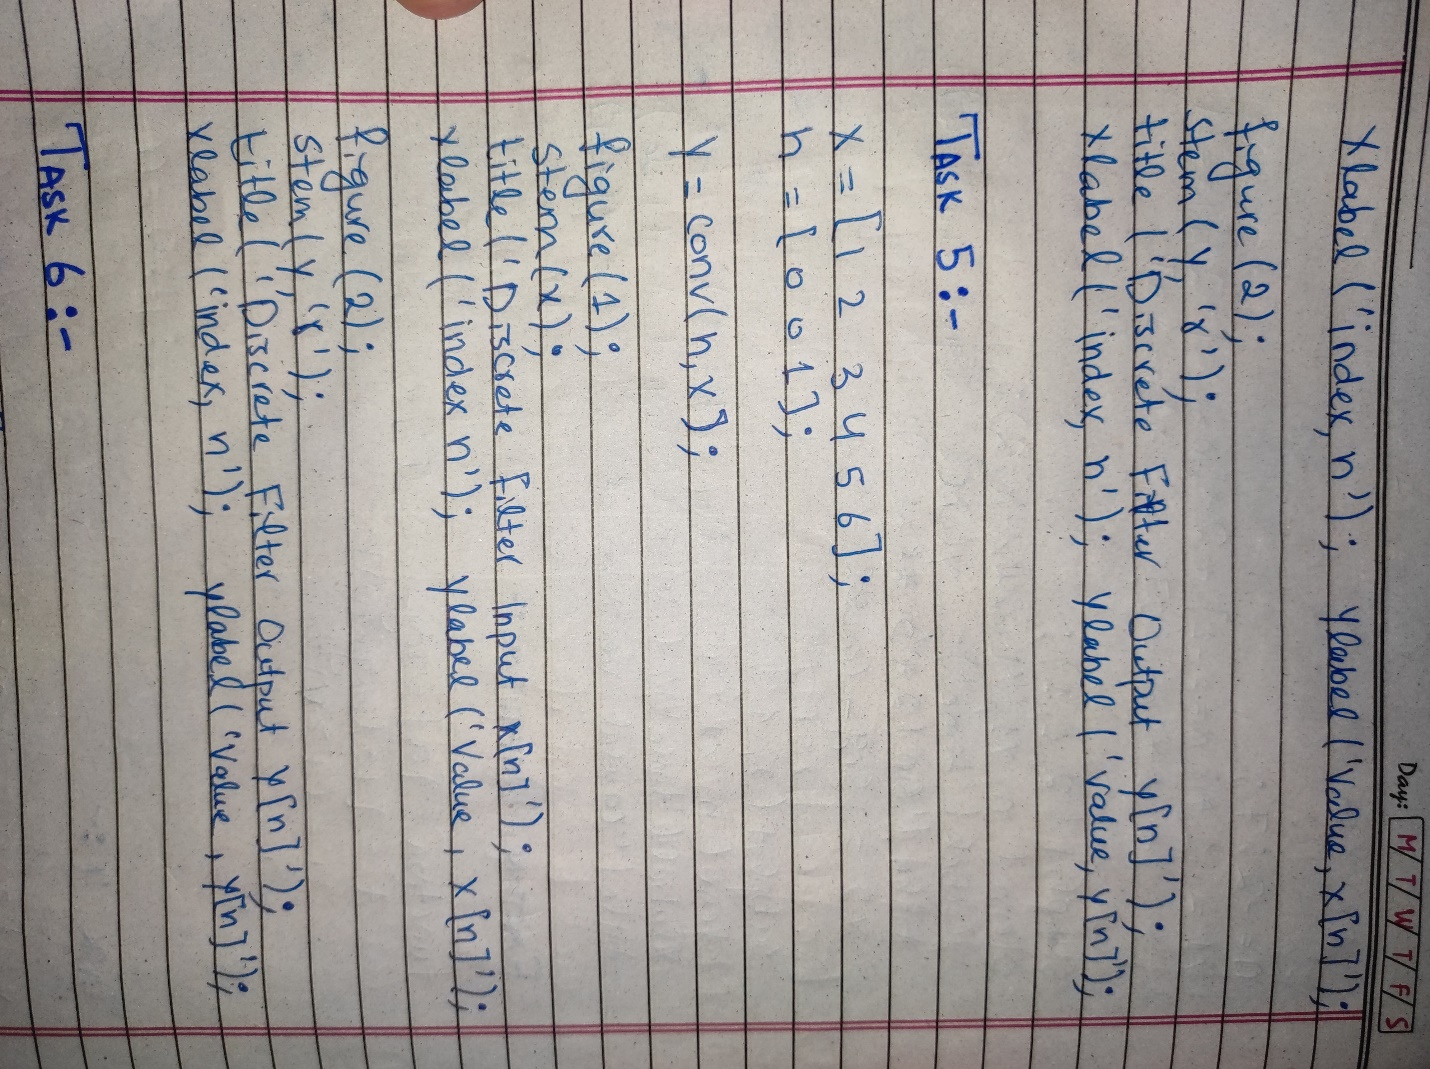 Day: M/T/W/T/F/S
xlabel('index, n'); ylabel('Value, x[n]');
figure(2);
stem(y, 'r');
title('Discrete Filter Output y[n]');
xlabel('index, n'); ylabel('value, y[n]');
TASK 5:-
x = [1 2 3 4 5 6];
h = [0 0 1];
y = conv(h,x);
figure(1);
stem(x);
title('Discrete filter Input x[n]');
xlabel('index n'); ylabel('Value, x[n]');
figure(2);
stem(y, 'r');
title('Discrete Filter Output y[n]');
xlabel('index, n'); ylabel('Value, y[n]');
TASK 6:-